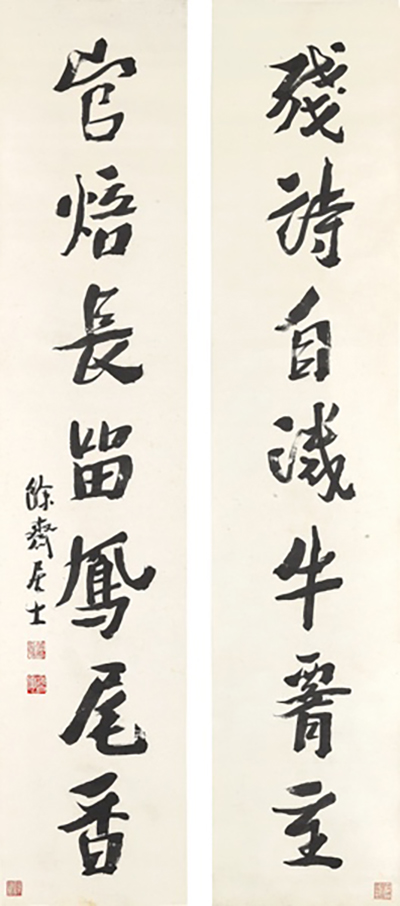 殘詩自減牛腰重
官焙長留鳳尾香
餘齋居士